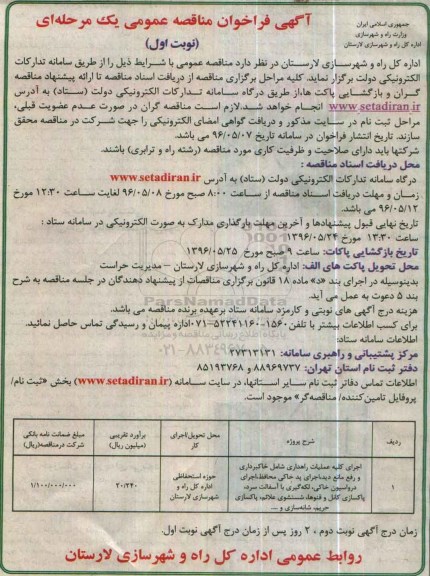 جمهوری اسلامی ایران
وزارت راه و شهرسازی
اداره کل راه و شهرسازی لارستان
آگهی فراخوان مناقصه عمومی یک مرحله‌ای
(نوبت اول)
اداره کل راه و شهرسـازی لارسـتان در نظر دارد مناقصه عمومی با شـرایط ذیل را از طریق سامانه تدارکات
الکترونیکی دولت برگزار نماید. کلیه مراحل برگزاری مناقصه از دریافت اسناد مناقصه تا ارائه پیشنهاد مناقصه
گـران و بازگشایی پـاکت ها،از طریق درگاه سامانه تـدارکات الکترونیکی دولت (ستاد) به آدرس
www.setadiran.ir انجام خواهد شـد.لازم اسـت مناقصه گران در صورت عـدم عضویـت قبلی،
مراحل ثبت نام در سـایت مذکور و دریافت گواهی امضای الکترونیکی را جهت شـرکت در مناقصه محقق
سازند. تاریخ انتشار فراخوان در سامانه تاریخ ۹۶/۰۵/۰۷ می باشد.
شرکتها باید دارای صلاحیت و ظرفیت کاری مورد مناقصه (رشته راه و ترابری) باشند.
محل دریافت اسناد مناقصه :
درگاه سامانه تدارکات الکترونیکی دولت (ستاد) به آدرس www.setadiran.ir
زمـان و مهلت دریافت اسـناد مناقصه از سـاعت ۸:۰۰ صبح مورخ ۹۶/۰۵/۰۸ لغایت سـاعت ۱۲:۳۰ مورخ
۹۶/۰۵/۱۲ می باشد.
تاریخ نهایی قبول پیشنهادها و آخرین مهلت بارگذاری مدارک به صورت الکترونیکی در سامانه ستاد :
ساعت ۱۳:۳۰ مورخ ۱۳۹۶/۰۵/۲۴
تاریخ بازگشایی پاکات: ساعت ۹ صبح مورخ ۱۳۹۶/۰۵/۲۵
محل تحویل پاکت های الف: اداره کل راه و شهرسازی لارستان – مدیریت حراست
بدینوسیله در اجرای بند «د» ماده ۱۸ قانون برگزاری مناقصات از پیشنهاد دهندگان در جلسه مناقصه به شرح
بند ۵ دعوت به عمل می آید.
هزینه درج آگهی های نوبتی و کارمزد سامانه ستاد برعهده برنده مناقصه می باشد.
برای کسب اطلاعات بیشتر با تلفن۱۵۶۰-۵۲۲۴۱۱۶۰-۰۷۱اداره پیمان و رسیدگی تماس حاصل نمائید.
اطلاعات سامانه ستاد:
مرکز پشتیبانی و راهبری سامانه: ۲۷۳۱۳۱۳۱
دفتر ثبت نام استان تهران: ۸۸۹۶۹۷۳۷ و ۸۵۱۹۳۷۶۸
اطلاعات تماس دفاتر ثبت نام سـایر اسـتانها، در سـایت سامانه (www.setadiran.ir) بخش «ثبت نام/
پروفایل تامین‌کننده/ مناقصه‌گر» موجود است.
ردیف | شرح پروژه | محل تحویل/اجرای کار | برآورد تقریبی (میلیون ریال) | مبلغ ضمانت نامه بانکی شرکت درمناقصه(ریال)
۱ | اجرای کلیه عملیات راهداری شامل خاکبرداری و رفع مانع دید،اجرای پد خاکی محافظ،اجرای درواسیون خاکی، لکه‌گیری با آسفالت سرد، پاکسازی کانال و قنوها، شستشوی علائم، پاکسازی حریم، شانه‌سازی و ... | حوزه استحفاظی اداره کل راه و شهرسازی لارستان | ۲۰/۲۴۰ | ۱/۱۰۰/۰۰۰/۰۰۰
زمان درج آگهی نوبت دوم ، ۲ روز پس از زمان درج آگهی نوبت اول.
روابط عمومی اداره کل راه و شهرسازی لارستان
ParsNamadData
۰۲۱-۸۸۳۴۹۶۷۰